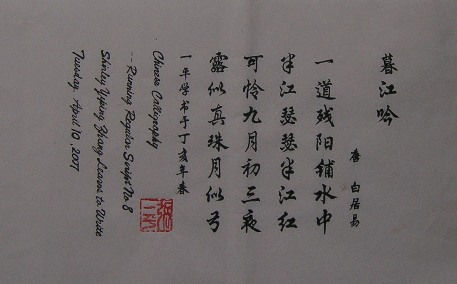 暮江吟
唐 白居易
一道残阳铺水中
半江瑟瑟半江红
可怜九月初三夜
露似真珠月似弓
一平学书于丁亥年春
Chinese Calligraphy
-- Running Regular Script No. 8
Shirley Yiping Zhang Learns to Write
Tuesday, April 10, 2007